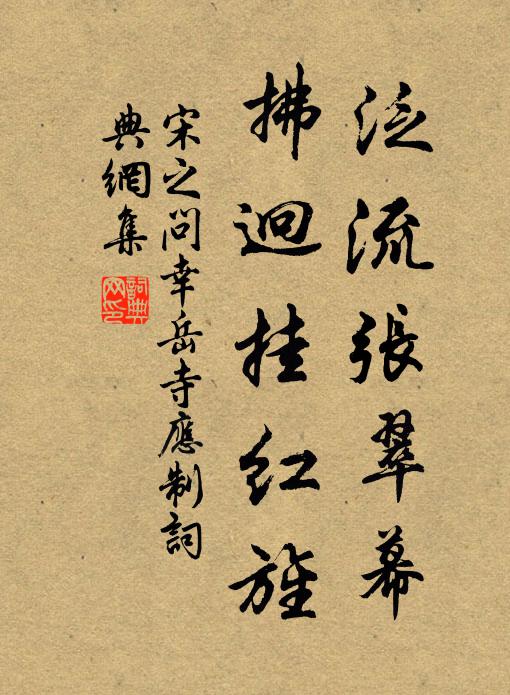 泛流張翠幕
拂迥挂紅旌
宋之問幸岳寺應制詞
典網集
詞典網印